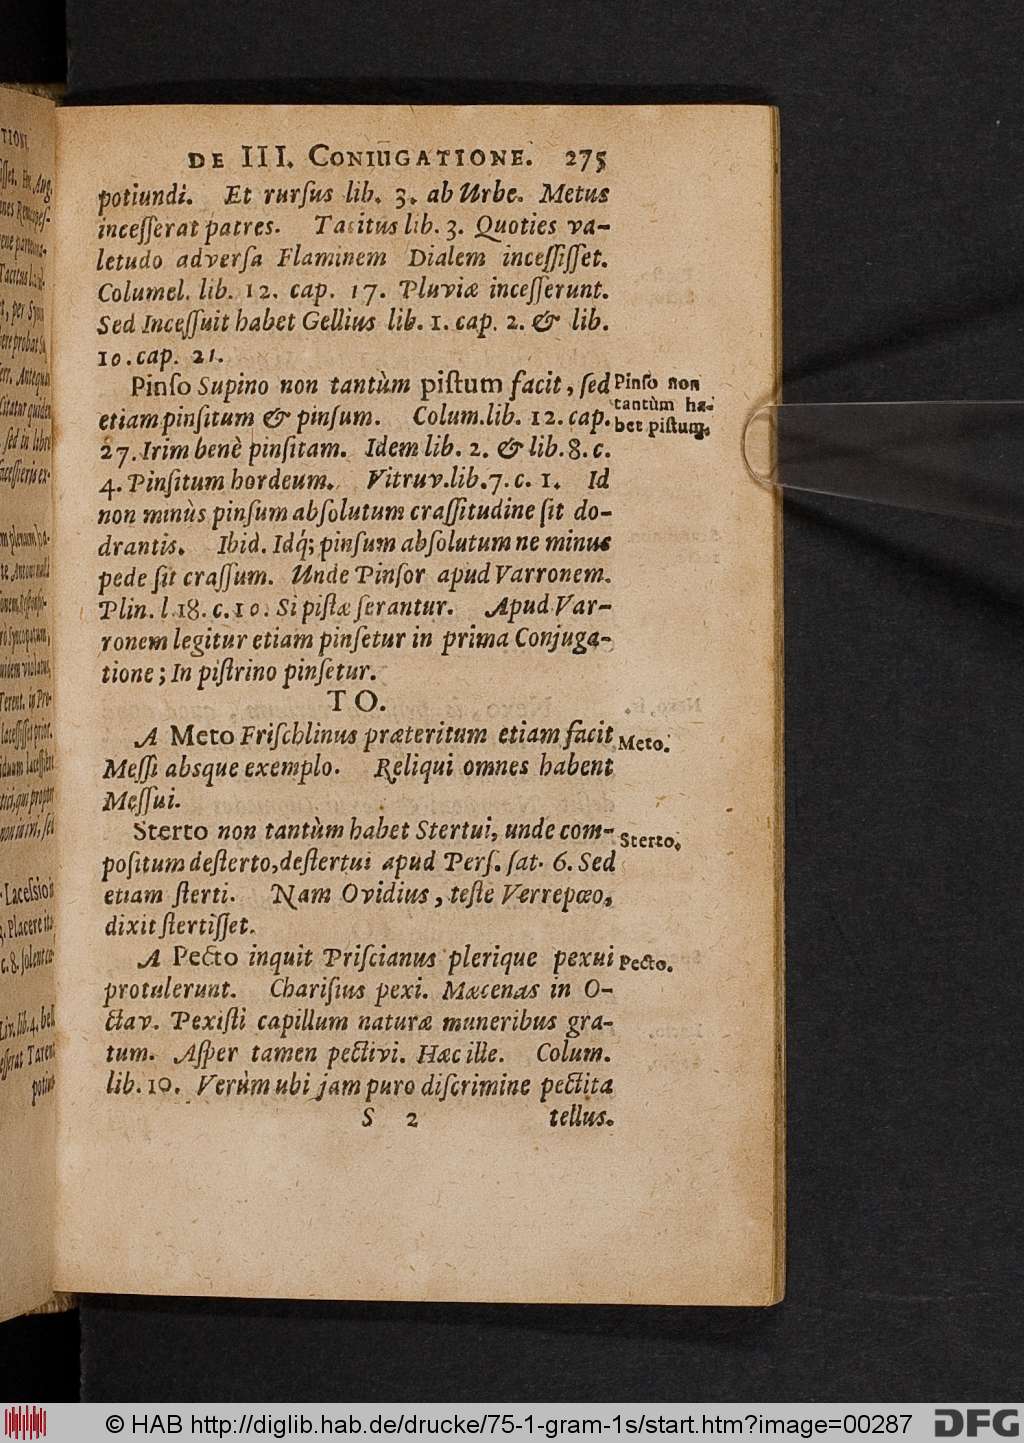 DE III. CONIUGATIONE. 275
potiundi. Et rurſus lib. 3. ab Urbe. Metus
inceſſerat patres. Tacitus lib. 3. Quoties va-
letudo adverſa Flaminem Dialem inceſſiſſet.
Columel. lib. 12. cap. 17. Pluviæ inceſſerunt.
Sed Inceſſuit habet Gellius lib. 1. cap. 2. & lib.
10. cap. 21.
Pinſo Supino non tantùm piſtum facit, ſed
Pinſo non
tantùm ha-
bet piſtum.
etiam pinſitum & pinſum. Colum. lib. 12. cap.
27. Irim benè pinſitam. Idem lib. 2. & lib. 8. c.
4. Pinſitum hordeum. Vitruv. lib. 7. c. 1. Id
non minùs pinſum abſolutum craſſitudine ſit do-
drantis. Ibid. Idq́; pinſum abſolutum ne minus
pede ſit craſſum. Unde Pinſor apud Varronem.
Plin. l. 18. c. 10. Si piſtæ ſerantur. Apud Var-
ronem legitur etiam pinſetur in prima Conjuga-
tione; In piſtrino pinſetur.
TO.
A Meto Friſchlinus præteritum etiam facit
Meto.
Meſſi absque exemplo. Reliqui omnes habent
Meſſui.
Sterto non tantùm habet Stertui, unde com-
Sterto.
poſitum deſterto, deſtertui apud Perſ. ſat. 6. Sed
etiam ſterti. Nam Ovidius, teſte Verrepœo,
dixit ſtertiſſet.
A Pecto inquit Priſcianus plerique pexui
Pecto.
protulerunt. Chariſius pexi. Mæcenas in O-
ctav. Pexiſti capillum naturæ muneribus gra-
tum. Aſper tamen pectivi. Hæc ille. Colum.
lib. 10. Verùm ubi jam puro diſcrimine pectita
S 2 tellus.
© HAB http://diglib.hab.de/drucke/75-1-gram-1s/start.htm?image=00287
DFG